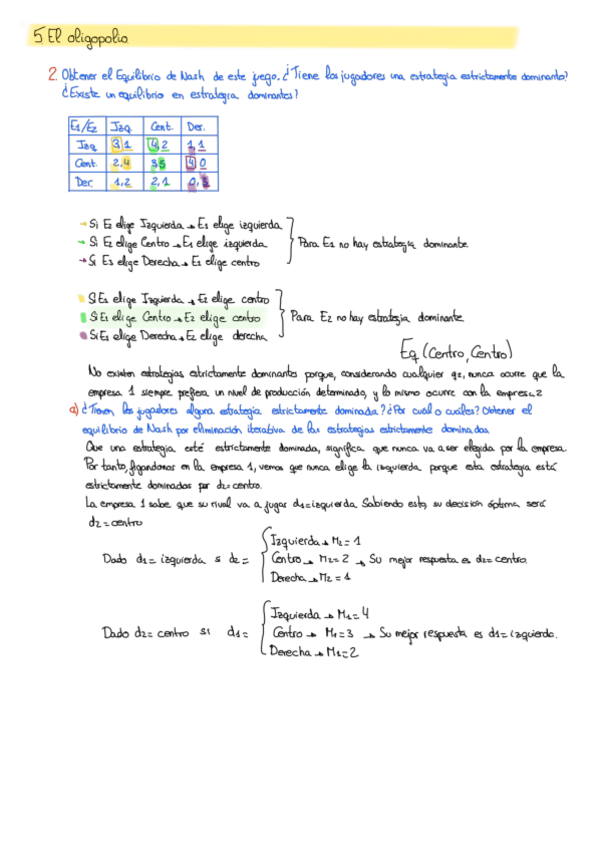 5. El oligopolio
2. Obtener el Equilibrio de Nash de este juego. ¿Tiene los jugadores una estrategia estrictamente dominante?
¿Existe un equilibrio en estrategia dominantes?
E1/E2 Izq Cent. Der.
Izq 3,1 4,2 1,1
Cent. 2,4 3,5 4,0
Der. 1,2 2,1 0,3
→ Si E2 elige Izquierda → E1 elige izquierda
→ Si E2 elige Centro → E1 elige izquierda
→ Si E2 elige Derecha → E1 elige centro
Para E1 no hay estrategia dominante
Si E1 elige Izquierda → E2 elige centro
Si E1 elige Centro → E2 elige centro
Si E1 elige Derecha → E2 elige derecha
Para E2 no hay estrategia dominante.
Eq (Centro, Centro)
No existen estrategias estrictamente dominante porque, considerando cualquier q2, nunca ocurre que la
empresa 1 siempre prefiera un nivel de producción determinado, y lo mismo ocurre con la empresa 2
a) ¿Tienen los jugadores alguna estrategia estrictamente dominada? ¿Por cuál o cuáles? Obtener el
equilibrio de Nash por eliminación iterativa de las estrategias estrictamente dominadas
Que una estrategia esté estrictamente dominada, significa que nunca va a ser elegida por la empresa.
Por tanto, fijandonos en la empresa 1, vemos que nunca elige la izquierda porque esta estrategia está
estrictamente dominadas por d2= centro.
La empresa 1 sabe que su rival va a jugar d1= izquierda. Sabiendo esto, su decisión óptima será
d2 = centro
Dado d1= izquierda si d2 =
Izquierda → M2 = 1
Centro → M2= 2 → Su mejor respuesta es d2= centro.
Derecha → M2 = 1
Dado d2= centro si d1 =
Izquierda → M1= 4
Centro → M1=3 → Su mejor respuesta es d1= izquierda.
Derecha → M1=2